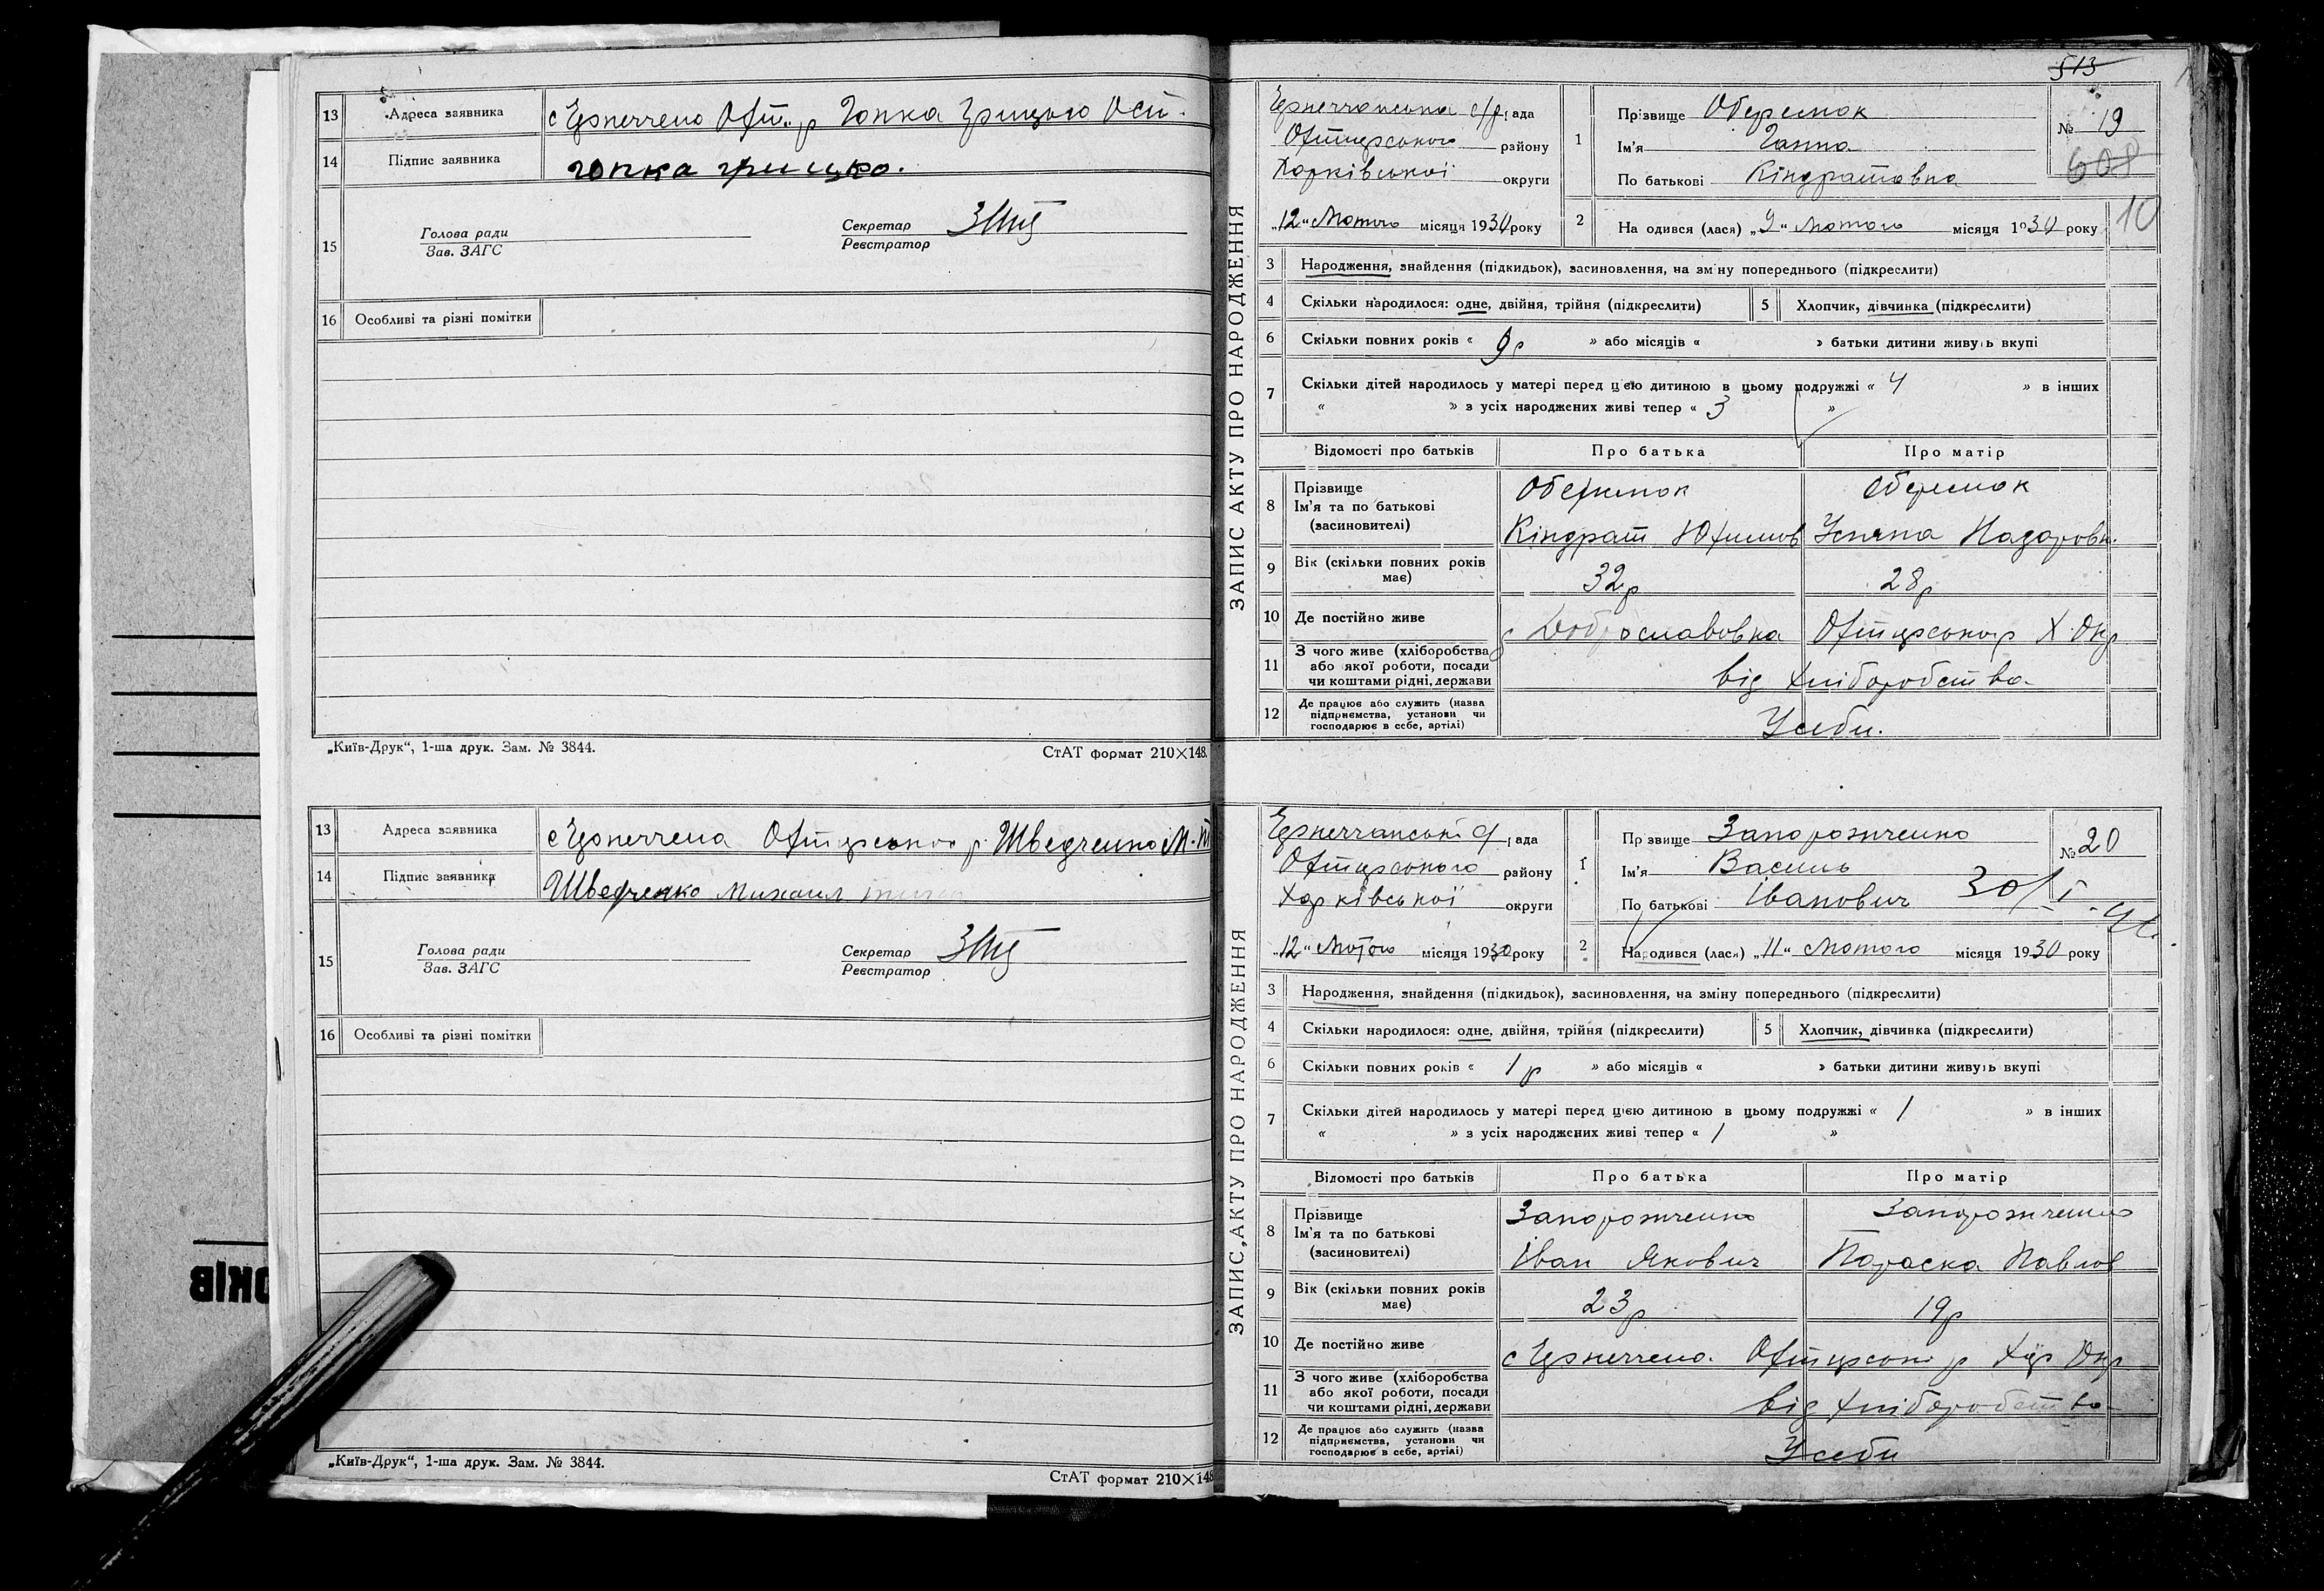 13 Адреса заявника с Чернеччено Охт. р Гопка Грицько Ост.
14 Підпис заявника гопка грицько.
15 Голова ради
Зав. ЗАГС
Секретар
Реєстратор
16 Особливі та різні помітки
„Київ-Друк“, 1-ша друк. Зам. № 3844.
СтАТ формат 210×148.
13 Адреса заявника с Чернеччена Охтирського р. Шведченко М.
14 Підпис заявника Шведченко Михаил
15 Голова ради
Зав. ЗАГС
Секретар
Реєстратор
16 Особливі та різні помітки
„Київ-Друк“, 1-ша друк. Зам. № 3844.
СтАТ формат 210×148
ОКІВ
513
ЗАПИС АКТУ ПРО НАРОДЖЕННЯ
Чернеччанська с/р рада
Охтирського району
Харківської округи
„12“ Лютого місяця 1930 року
1 Прізвище Оберемок
Ім'я Ганна
По батькові Кіндратовна
№ 19
608
10
2 На одився (лася) „9“ Лютого місяця 1930 року
3 Народження, знайдення (підкидьок), засиновлення, на зміну попереднього (підкреслити)
4 Скільки народилося: одне, двійня, трійня (підкреслити) 5 Хлопчик, дівчинка (підкреслити)
6 Скільки повних років « 9р » або місяців « » батьки дитини живуть вкупі
7 Скільки дітей народилось у матері перед цією дитиною в цьому подружжі « 4 » в інших
« » з усіх народжених живі тепер « 3 »
Відомості про батьків Про батька Про матір
8 Прізвище Оберемок Оберемок
Ім'я та по батькові
(засиновителі) Кіндрат Юхимов Уляна Назаровн.
9 Вік (скільки повних років має) 32р 28р
10 Де постійно живе с Доброславовка Охтирськ р Х. Окр
11 З чого живе (хліборобства
або якої роботи, посади
чи коштами рідні, держави від хліборобства
12 Де працює або служить (назва
підприємства, установи чи
господарює в себе, артілі) У себи.
ЗАПИС АКТУ ПРО НАРОДЖЕННЯ
Чернеччанські с/ рада
Охтирського району
Харківської округи
„12“ Лютого місяця 1930 року
1 Прізвище Запорожченко
Ім'я Василь
По батькові Іванович
№ 20
30/I
2 Народився (лася) „11“ Лютого місяця 1930 року
3 Народження, знайдення (підкидьок), засиновлення, на зміну попереднього (підкреслити)
4 Скільки народилося: одне, двійня, трійня (підкреслити) 5 Хлопчик, дівчинка (підкреслити)
6 Скільки повних років « 1р » або місяців « » батьки дитини живуть вкупі
7 Скільки дітей народилось у матері перед цією дитиною в цьому подружжі « 1 » в інших
« » з усіх народжених живі тепер « 1 »
Відомості про батьків Про батька Про матір
8 Прізвище Запорожченко Запорожченко
Ім'я та по батькові
(засиновителі) Іван Якович Параска Павлов
9 Вік (скільки повних років має) 23р 19р
10 Де постійно живе с Чернеччено. Охтирськ р Хар Окр
11 З чого живе (хліборобства
або якої роботи, посади
чи коштами рідні, держави від хліборобства
12 Де працює або служить (назва
підприємства, установи чи
господарює в себе, артілі) У себи